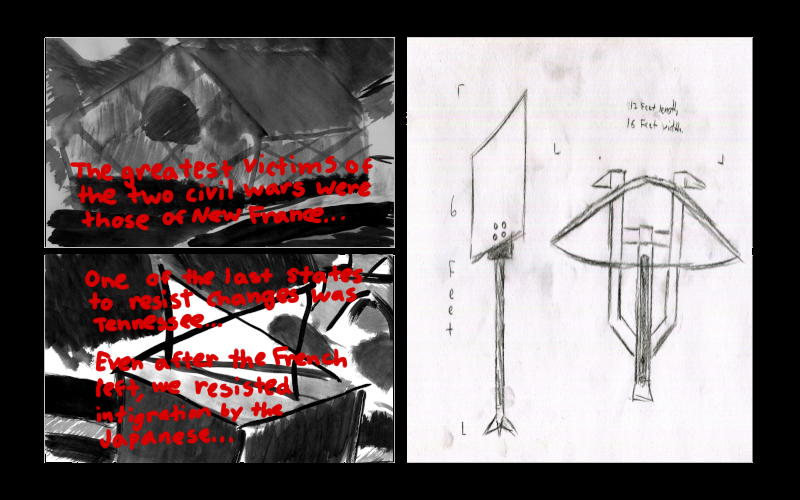 The greatest victims of
the two civil wars were
those of New France...
One of the last states
to resist changes was
Tennessee...
Even after the French
left, we resisted
intigration by the
Japanese...
12 feet length,
16 Feet width.
6
F
e
e
t